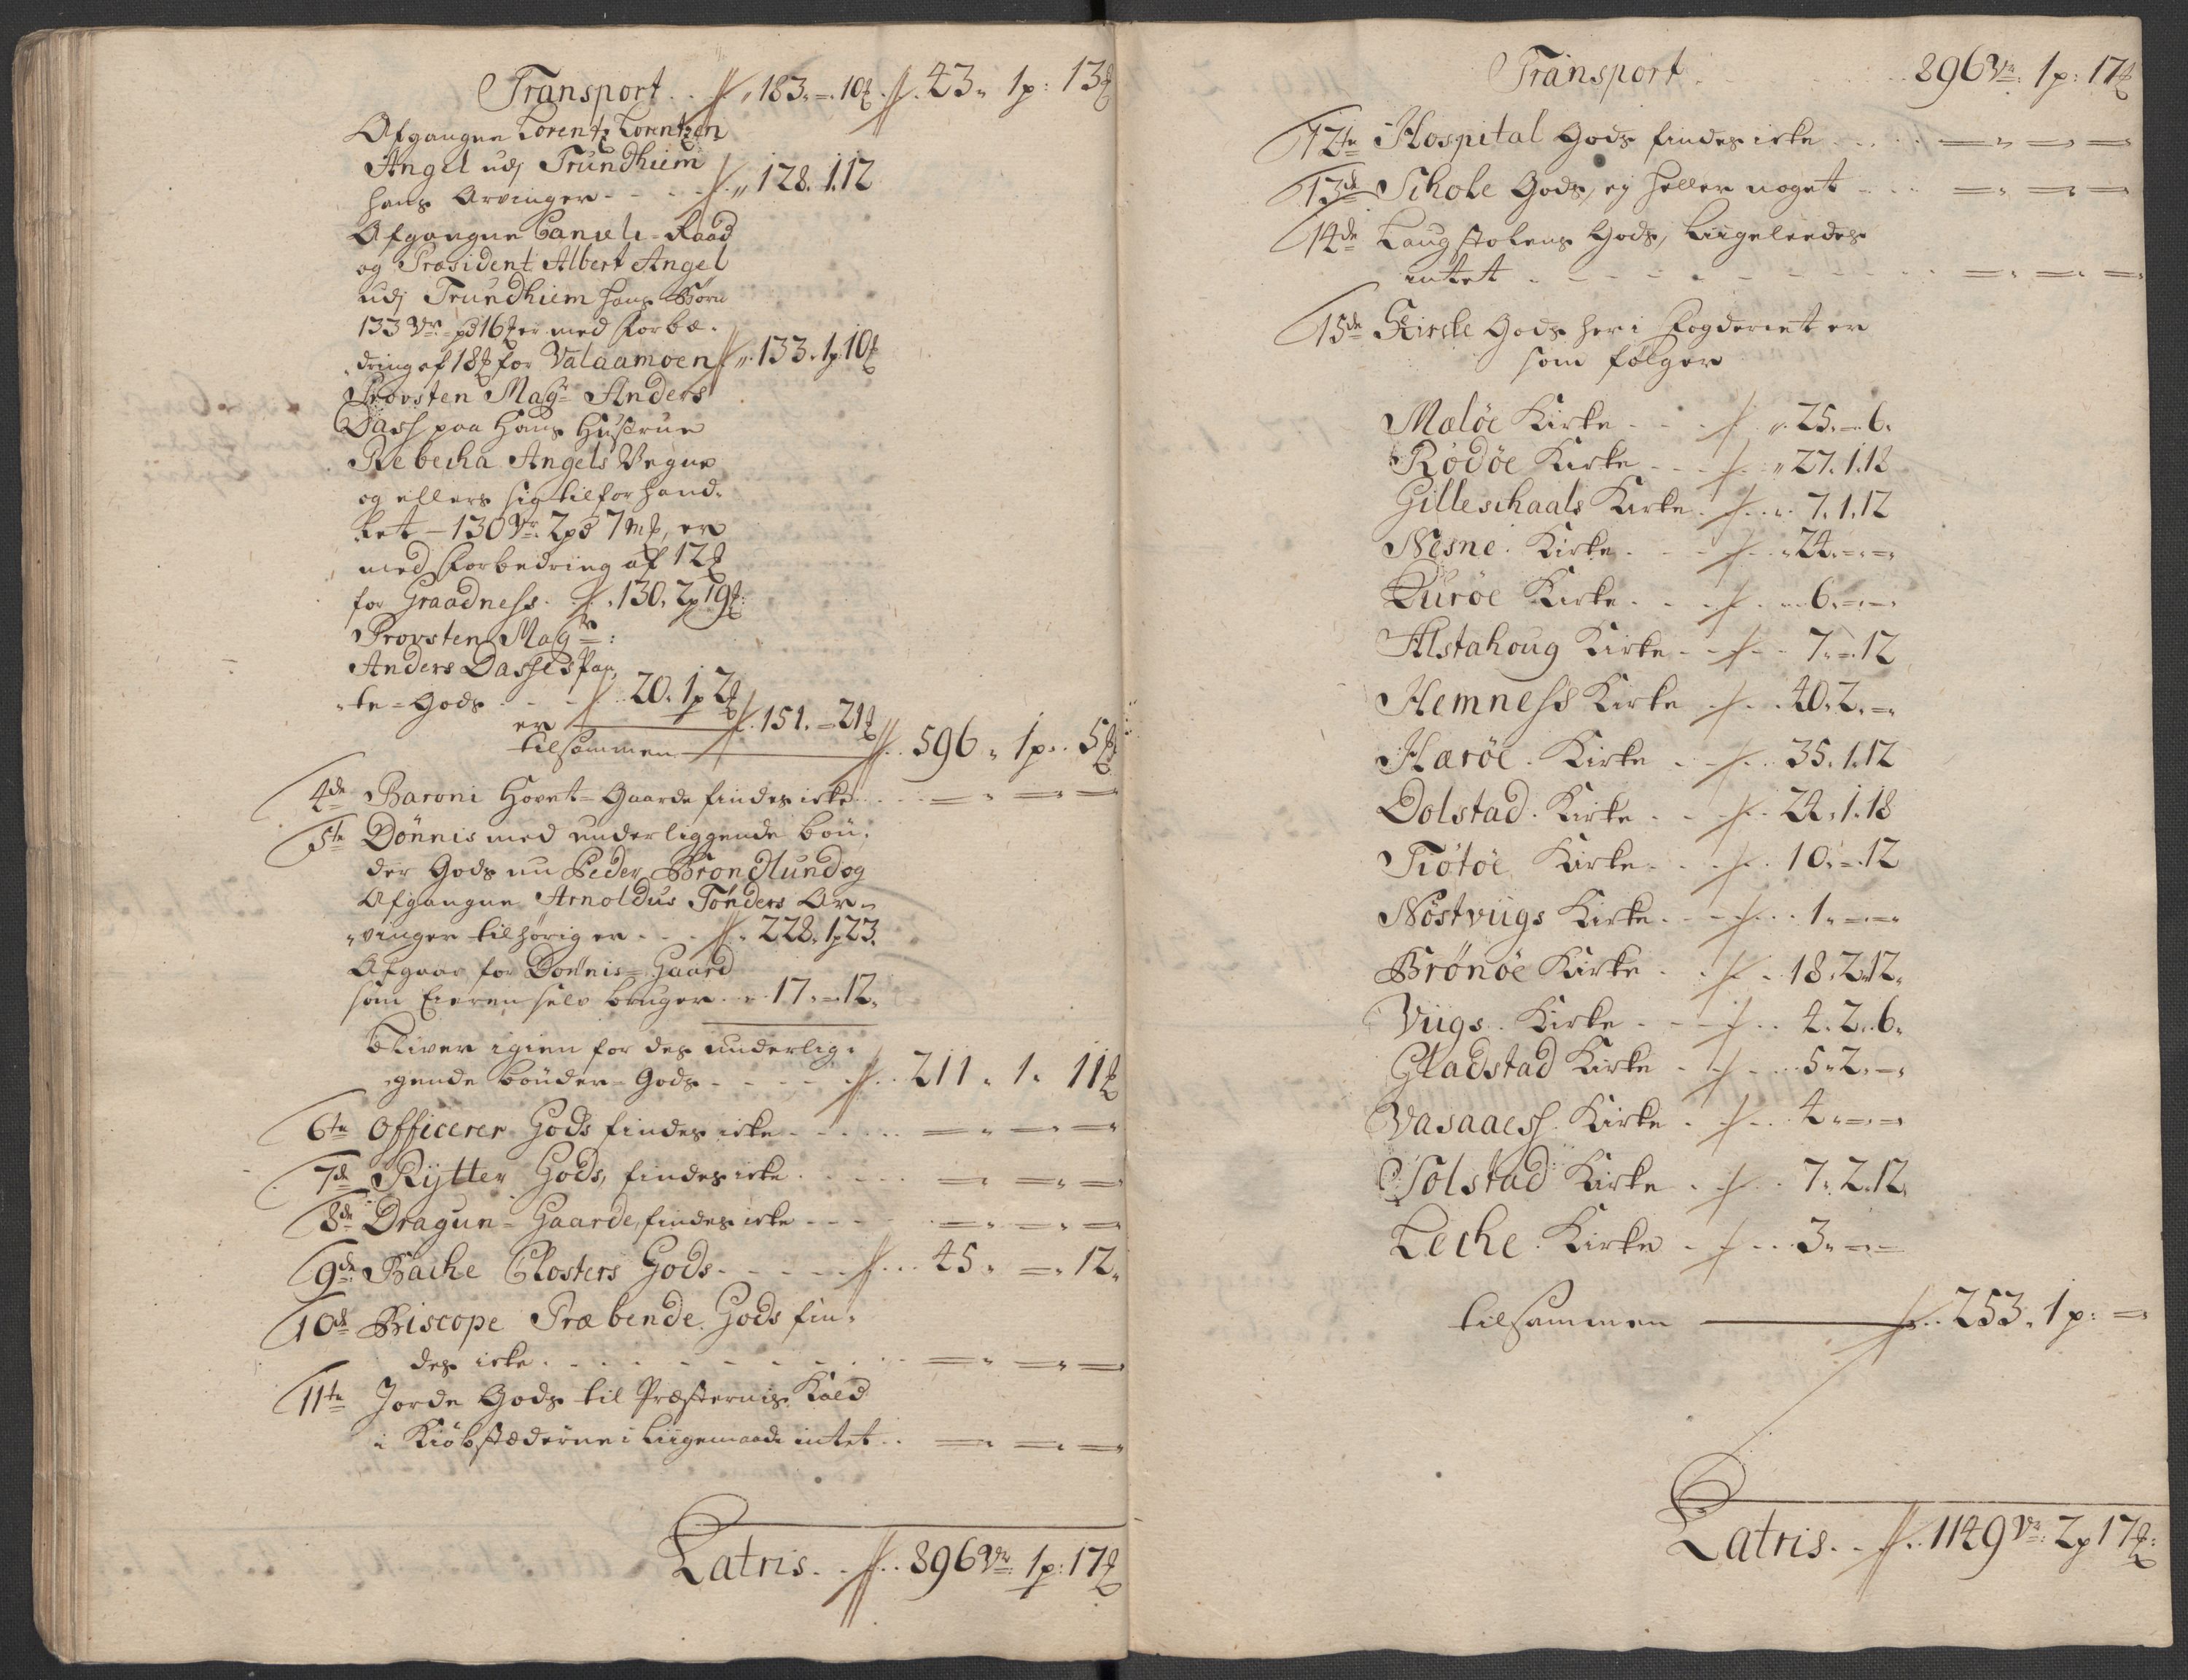 Transport . . 183. = . 10 . 43 " 1 p: 13
Afgangne Lorentz Lorentzen
Angel udj Trundhiem
hans Arvinger - - - " 128. 1. 12
Afgangne Canceli-Raad
og Præsident Albert Angel
udj Trundhiem hans Børn
133 Vr: pd 16 er med forbe-
dring af 18 for Valaamoen " 133. 1p 10
Provsten Magr Anders
Dass paa hans Hustrue
Rebecha Angels Vegne
og ellers sig tilforhand-
let - 130 Vr. 2 pd 7 mk, er
med forbedring af 12
for Graadness . . 130. 2p 19
Provsten Magr:
Anders Dasses Pan-
te-Gods . . 20. 1p 2
er 151. = 21
tilsammen . . 596 " 1p . . 5
4de Baroni Hovet-Gaarde findes icke . . = " = =
5te Dönnis med underliggende bøn-
der Gods nu Peder Brondlund og
Afgangne Arnoldus Tønders Ar-
vinger tilhørig er - - . 228. 1p 23.
Afgaar for Dønnis-Gaard
som Eieren selv bruger . . 17. = 12.
bliver igien for des underlig-
gende bønder-Gods - - - . . 211 " 1 " 11
6te Officerer Gods findes icke . . . = " = =
7de Rytter Gods, findes icke . . . = " = " =
8de Dragun-Gaarde, findes icke . . . = " = " =
9de Bache Closters Gods - - - . . 45 " = " 12 "
10de Biscops Præbende Gods fin-
des icke . . . = " = " =
11te Jorde Gods til Præsternis Kald
i Kiöbstæderne i Liigemaade intet . . = " = " =
Latris . . 896 Vr: 1p: 17
Transport . . . 896 Vr: 1p: 17
12te Hospital Gods findes icke . . . = " = =
13de Schole Gods, ej heller noget . . . = " = =
14de Laugstolens Gods, Liigeleedes
intet . . . = " = " =
15de Kircke Gods her i Fogderiet er
som følger
Meløe Kirke - - " 25. = . 6.
Rødøe Kirke - - " 27. 1. 18
Gilleschaals Kirke . . 7. 1. 12
Nesne Kirke . . . 24. = . = .
Lurøe Kirke . . . 6. = . = .
Alstahoug Kirke - - 7. = . 12
Hemness Kirke . . 40. 2. =
Harøe Kirke . . 35. 1. 12
Dolstad Kirke . . 24. 1. 18
Tiøtøe Kirke . . 10. = . 12
Nøstviigs Kirke . . . 1. = . = .
Brønøe Kirke . . 18. 2. 12.
Viigs Kirke - - 4. 2. . 6.
Gladstad Kirke . . . 5. 2. =
Vasaaess Kirke . . 4. = . =
Solstad Kirke . . 7. 2. 12.
Leche Kirke . . . 3. = . =
tilsammen . . 253. 1p: =
Latris . . . 1149 Vr: 2p 17